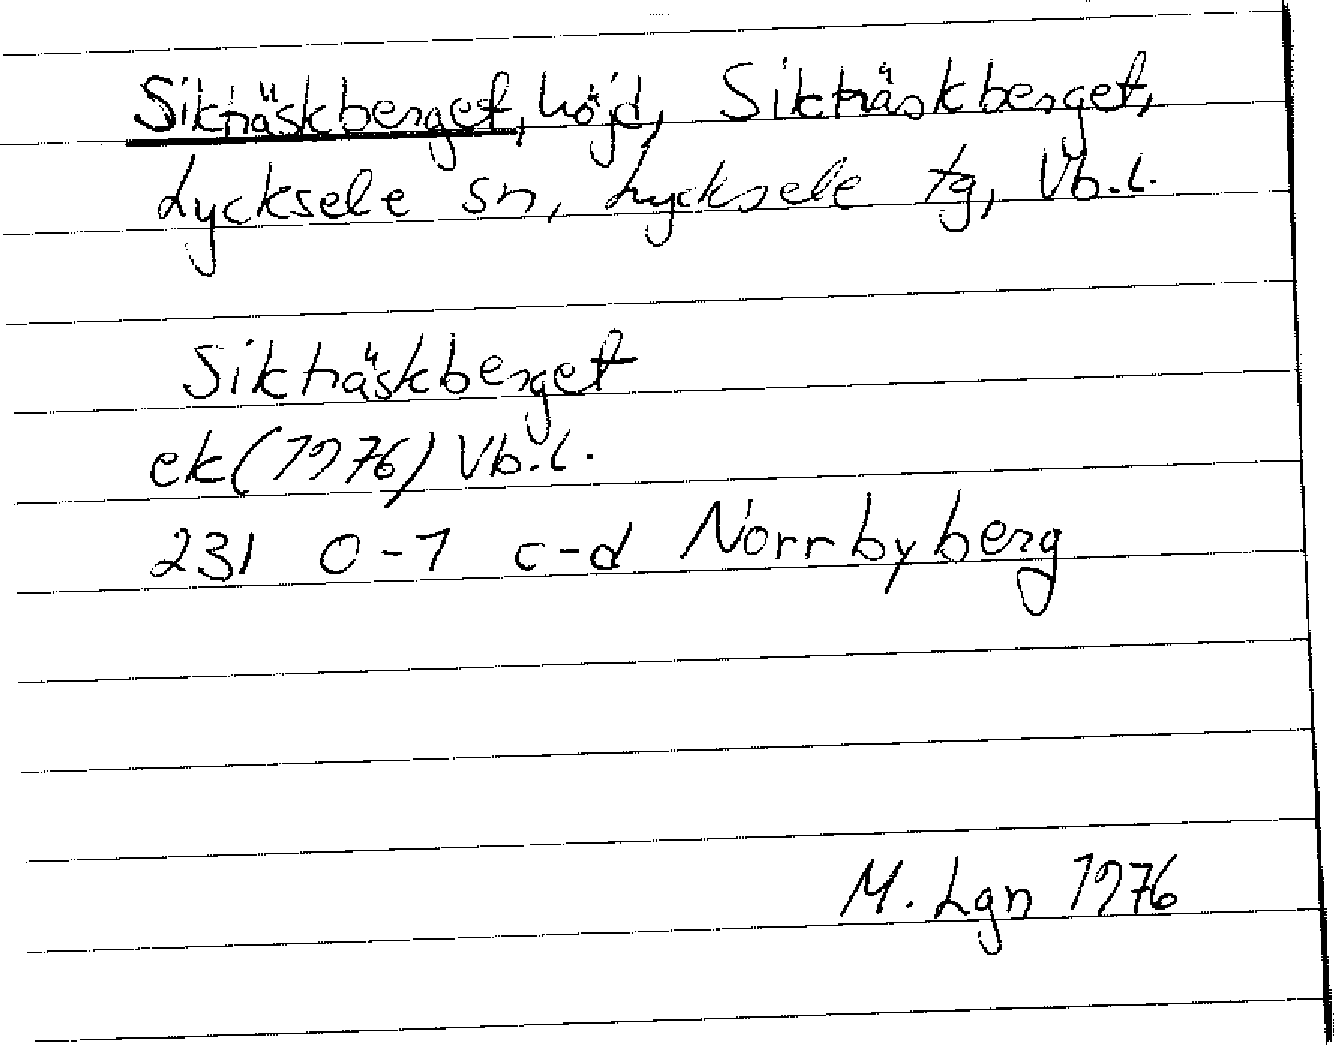 Sikträskberget, höjd, Sikträskberget,
Lycksele sn, Lycksele tg, Vb.l.
Sikträskberget
ek(1976) Vb.l.
231 0-1 c-d Norrbyberg
M. Lgn 1976